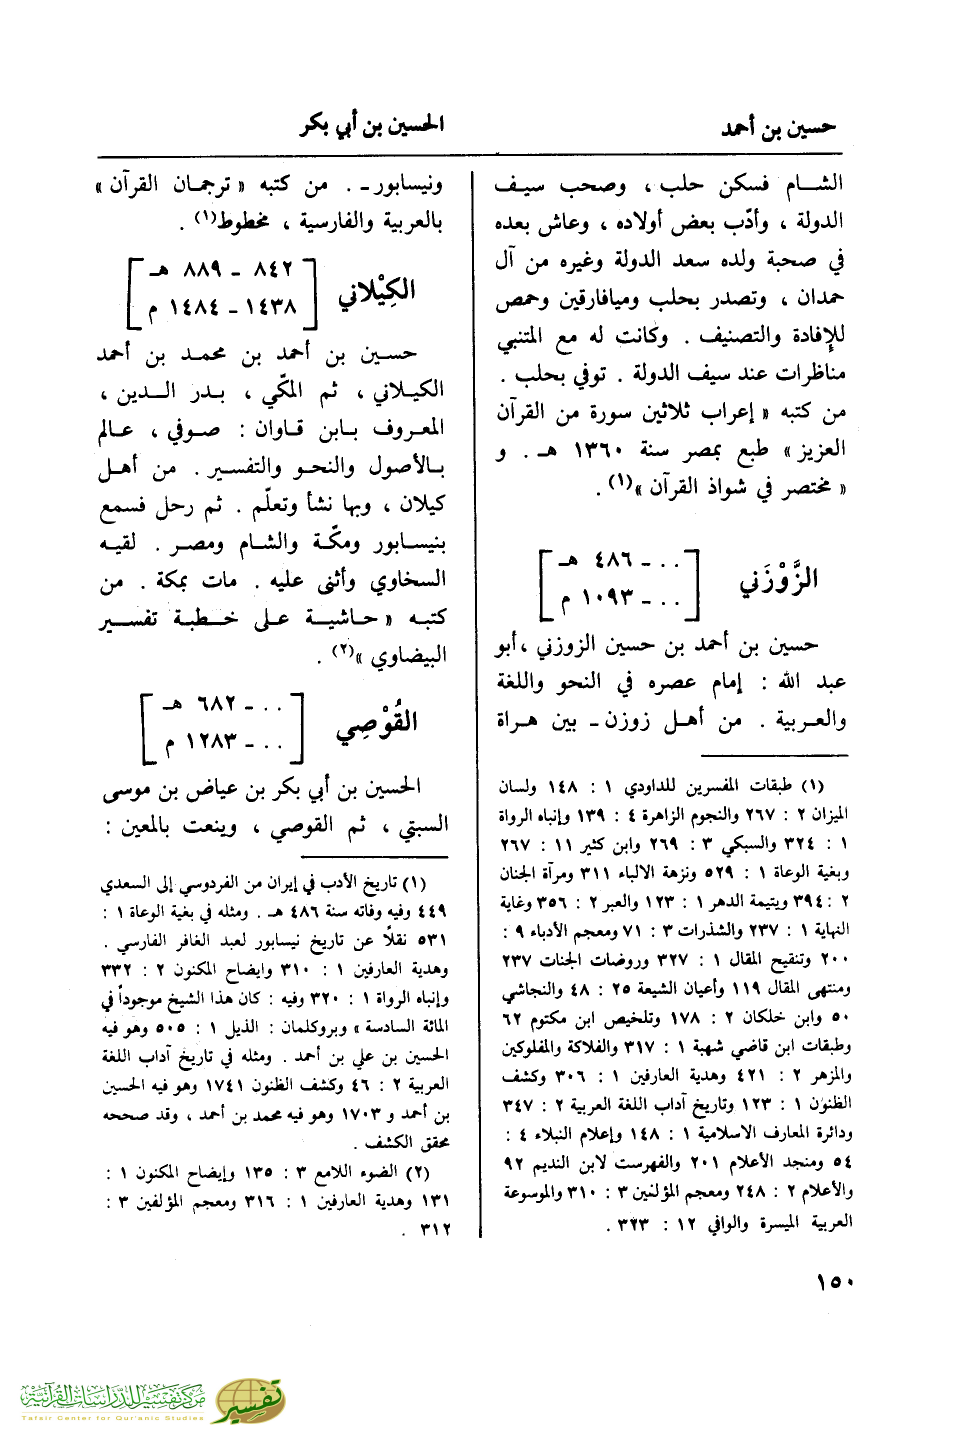 حسين بن أحمد
الحسين بن أبي بكر
الشام فسكن حلب ، وصحب سيف
الدولة ، وأدّب بعض أولاده ، وعاش بعده
في صحبة ولده سعد الدولة وغيره من آل
حمدان ، وتصدر بحلب وميافارقين وحمص
للإفادة والتصنيف . وكانت له مع المتنبي
مناظرات عند سيف الدولة . توفي بحلب .
من كتبه « إعراب ثلاثين سورة من القرآن
العزيز » طبع بمصر سنة ١٣٦٠ هـ . و
« مختصر في شواذ القرآن »(١) .
الزَّوْزَني
[ . . ـ ٤٨٦ هـ
. . ـ ١٠٩٣ م ]
حسين بن أحمد بن حسين الزوزني ، أبو
عبد الله : إمام عصره في النحو واللغة
والعربية . من أهل زوزن ـ بين هراة
(١) طبقات المفسرين للداودي ١ : ١٤٨ ولسان
الميزان ٢ : ٢٦٧ والنجوم الزاهرة ٤ : ١٣٩ وإنباه الرواة
١ : ٣٢٤ والسبكي ٣ : ٢٦٩ وابن كثير ١١ : ٢٦٧
وبغية الوعاة ١ : ٥٢٩ ونزهة الالباء ٣١١ ومرآة الجنان
٢ : ٣٩٤ ويتيمة الدهر ١ : ١٢٣ والعبر ٢ : ٣٥٦ وغاية
النهاية ١ : ٢٣٧ والشذرات ٣ : ٧١ ومعجم الأدباء ٩ :
٢٠٠ وتنقيح المقال ١ : ٣٢٧ وروضات الجنات ٢٣٧
ومنتهى المقال ١١٩ وأعيان الشيعة ٢٥ : ٤٨ والنجاشي
٥٠ وابن خلكان ٢ : ١٧٨ وتلخيص ابن مكتوم ٦٢
وطبقات ابن قاضي شهبة ١ : ٣١٧ والفلاكة والمفلوكين
والمزهر ٢ : ٤٢١ وهدية العارفين ١ : ٣٠٦ وكشف
الظنون ١ : ١٢٣ وتاريخ آداب اللغة العربية ٢ : ٣٤٧
ودائرة المعارف الاسلامية ١ : ١٤٨ وإعلام النبلاء ٤ :
٥٤ ومنجد الأعلام ٢٠١ والفهرست لابن النديم ٩٢
والأعلام ٢ : ٢٤٨ ومعجم المؤلفين ٣ : ٣١٠ والموسوعة
العربية الميسرة والوافي ١٢ : ٣٢٣ .
ونيسابور ـ . من كتبه « ترجمان القرآن »
بالعربية والفارسية ، مخطوط(١) .
الكِيْلاني
[ ٨٤٢ ـ ٨٨٩ هـ
١٤٣٨ ـ ١٤٨٤ م ]
حسين بن أحمد بن محمد بن أحمد
الكيلاني ، ثم المكّي ، بدر الدين ،
المعروف بابن قاوان : صوفي ، عالم
بالأصول والنحو والتفسير . من أهل
كيلان ، وبها نشأ وتعلّم . ثم رحل فسمع
بنيسابور ومكّة والشام ومصر . لقيه
السخاوي وأثنى عليه . مات بمكة . من
كتبه « حاشية على خطبة تفسير
البيضاوي »(٢) .
القُوْصِي
[ . . ـ ٦٨٢ هـ
. . ـ ١٢٨٣ م ]
الحسين بن أبي بكر بن عياض بن موسى
السبتي ، ثم القوصي ، وينعت بالمعين :
(١) تاريخ الأدب في إيران من الفردوسي إلى السعدي
٤٤٩ وفيه وفاته سنة ٤٨٦ هـ . ومثله في بغية الوعاة ١ :
٥٣١ نقلاً عن تاريخ نيسابور لعبد الغافر الفارسي .
وهدية العارفين ١ : ٣١٠ وايضاح المكنون ٢ : ٣٣٢
وإنباه الرواة ١ : ٣٢٠ وفيه : كان هذا الشيخ موجوداً في
المائة السادسة » وبروكلمان : الذيل ١ : ٥٠٥ وهو فيه
الحسين بن علي بن أحمد . ومثله في تاريخ آداب اللغة
العربية ٢ : ٤٦ وكشف الظنون ١٧٤١ وهو فيه الحسين
بن أحمد و ١٧٠٣ وهو فيه محمد بن أحمد ، وقد صححه
محقق الكشف .
(٢) الضوء اللامع ٣ : ١٣٥ وإيضاح المكنون ١ :
١٣١ وهدية العارفين ١ : ٣١٦ ومعجم المؤلفين ٣ :
٣١٢ .
١٥٠
مركز تفسير للدراسات القرآنية
Tafsir Center for Qur'anic Studies
تفسير